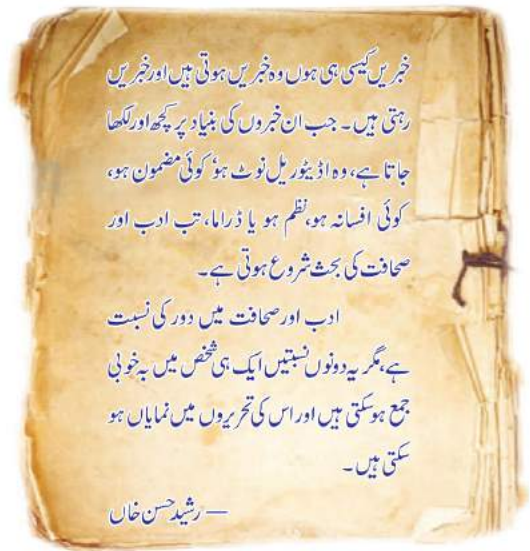 خبریں کیسی ہی ہوں وہ خبریں ہوتی ہیں اور خبریں
رہتی ہیں۔ جب ان خبروں کی بنیاد پر کچھ اور لکھا
جاتا ہے، وہ اڈیٹوریل نوٹ ہو، کوئی مضمون ہو،
کوئی افسانہ ہو، نظم ہو یا ڈراما، تب ادب اور
صحافت کی بحث شروع ہوتی ہے۔
ادب اور صحافت میں دور کی نسبت
ہے، مگر یہ دونوں نسبتیں ایک ہی شخص میں بہ خوبی
جمع ہوسکتی ہیں اور اس کی تحریروں میں نمایاں ہو
سکتی ہیں۔
— رشید حسن خاں